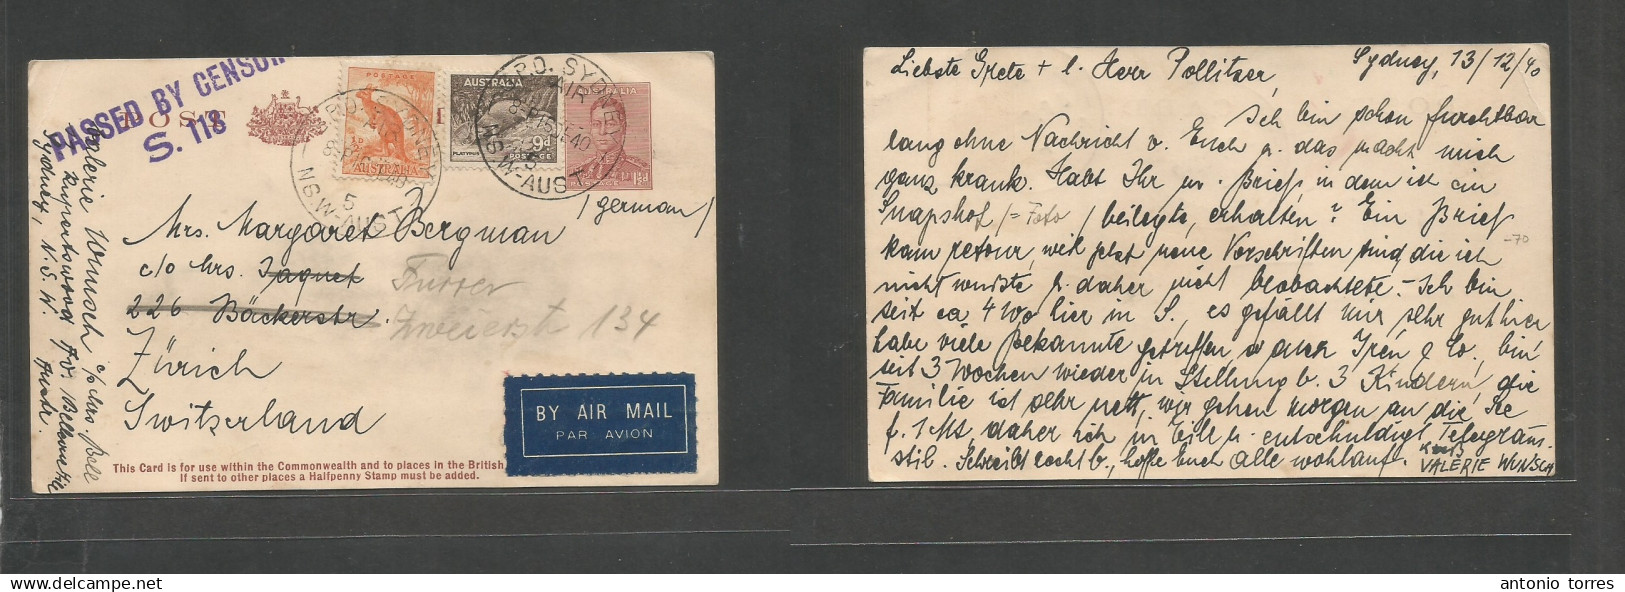 PASSED BY CENSOR
S. 118
POST
POSTAGE
AUSTRALIA
AUSTRALIA
PLATYPUS
9d
POSTAGE
AUSTRALIA
1½d
G.P.O. SYDNEY
8-P16DE40
5
N.S.W-AUST
G.P.O. SYDNEY
AIR
8-P15DE40
3
N.S.W-AUST
/german/
Mrs. Margaret Bergman
c/o Mrs. Jaquet Furrer
226 Bäckerstr. Zweierstr 134
Zürich
Switzerland
BY AIR MAIL
PAR AVION
This Card is for use within the Commonwealth and to places in the British
If sent to other places a Halfpenny Stamp must be added.
Valerie Wunsch c/o Mrs. Bell
Rupertswood Av. Bellevue Hill
Sydney, N.S.W. Austr.
Sydney, 13/12/40
Liebste Grete + l. Herr Pollitzer,
Ich bin schon furchtbar
lang ohne Nachricht v. Euch u. das macht mich
ganz krank. Habt Ihr m. Brief in dem ich ein
Snapshot /= Foto / beilegte, erhalten? Ein Brief
kam retour, weil jetzt neue Vorschriften sind die ich
nicht wusste u. daher nicht beobachtete. - Ich bin
-70
seit ca 4 Wo hier in S., es gefällt mir sehr gut hier
habe viele Bekannte getroffen, so auch Irén & Co, bin
seit 3 Wochen wieder in Stellung b. 3 Kindern, die
Familie ist sehr nett, wir gehen morgen an die See
f. 1 Mt, daher ich in Eile u. entschuldigt Telegram-
stil. Schreibt recht b., hoffe Euch alle wohlauf.
VALERIE WUNSCH
antonio torres